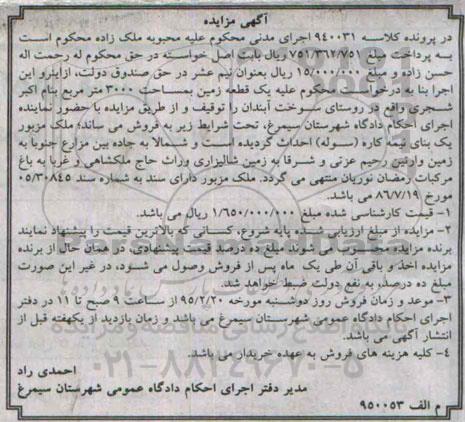 آگهی مزایده
در پرونده کلاسه ۹۴۰۰۳۱ اجرای مدنی محکوم علیه محبوبه ملک زاده محکوم است
به پرداخت مبلغ ۷۵۱/۳۶۲/۷۵۱ ریال بابت اصل خواسته در حق محکوم له رحمت اله
حسن زاده و مبلغ ۱۵/۰۰۰/۰۰۰ ریال بعنوان نیم عشر در حق صندوق دولت، ازاینرو این
اجرا بنا به درخواست محکوم علیه یک قطعه زمین بمساحت ۳۰۰۰ متر مربع بنام اکبر
شجری واقع در روستای سوخت آبندان را توقیف و از طریق مزایده با حضور نماینده
اجرای احکام دادگاه شهرستان سیمرغ، تحت شرایط زیر به فروش می رساند؛ ملک مزبور
یک بنای نیمه کاره (سوله) احداث گردیده است و شمالا به جاده بین مزارع جنوبا به
زمین وارثین رحیم عزتی و شرقا به زمین شالیزاری وراث حاج ملکشاهی و غربا به باغ
مرکبات رمضان نوریان منتهی می گردد. ملک مزبور دارای سند به شماره سند ۰۵/۳۰۸۴۵
مورخ ۸۶/۷/۱۹ می باشد.
۱- قیمت کارشناسی شده مبلغ ۱/۶۵۰/۰۰۰/۰۰۰ ریال می باشد.
۲- مزایده از مبلغ ارزیابی شده پایه شروع، کسانی که بالاترین قیمت را پیشنهاد نمایند
برنده مزایده محسوب می شوند مبلغ ده درصد قیمت پیشنهادی، در همان حال از برنده
مزایده اخذ و باقی آن طی یک ماه پس از فروش وصول می شود، در غیر این صورت
مبلغ ده درصد، به نفع دولت ضبط خواهد شد.
۳- موعد و زمان فروش روز دوشنبه مورخه ۹۵/۲/۲۰ از ساعت ۹ صبح تا ۱۱ در دفتر
اجرای احکام دادگاه عمومی شهرستان سیمرغ می باشد و زمان بازدید از یکهفته قبل از
انتشار آگهی می باشد.
۴- کلیه هزینه های فروش به عهده خریدار می باشد.
احمدی راد
مدیر دفتر اجرای احکام دادگاه عمومی شهرستان سیمرغ
م الف ۹۵۰۰۵۳
پایگاه اطلاع رسانی مناقصه و مزایده
۰۲۱-۸۸۳۴۹۶۷۰-۵